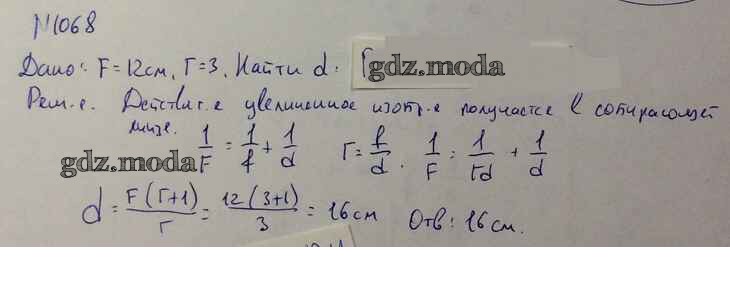 N1068
Дано: F = 12см, Г=3. Найти d.
gdz.moda
Реш-е. Действит-е увеличенное изобр-е получается в собирающей
линзе. 1/F = 1/f + 1/d Г = f/d. 1/F = 1/Гd + 1/d
gdz.moda
d = F(Г+1)/Г = 12(3+1)/3 = 16см Отв: 16см.